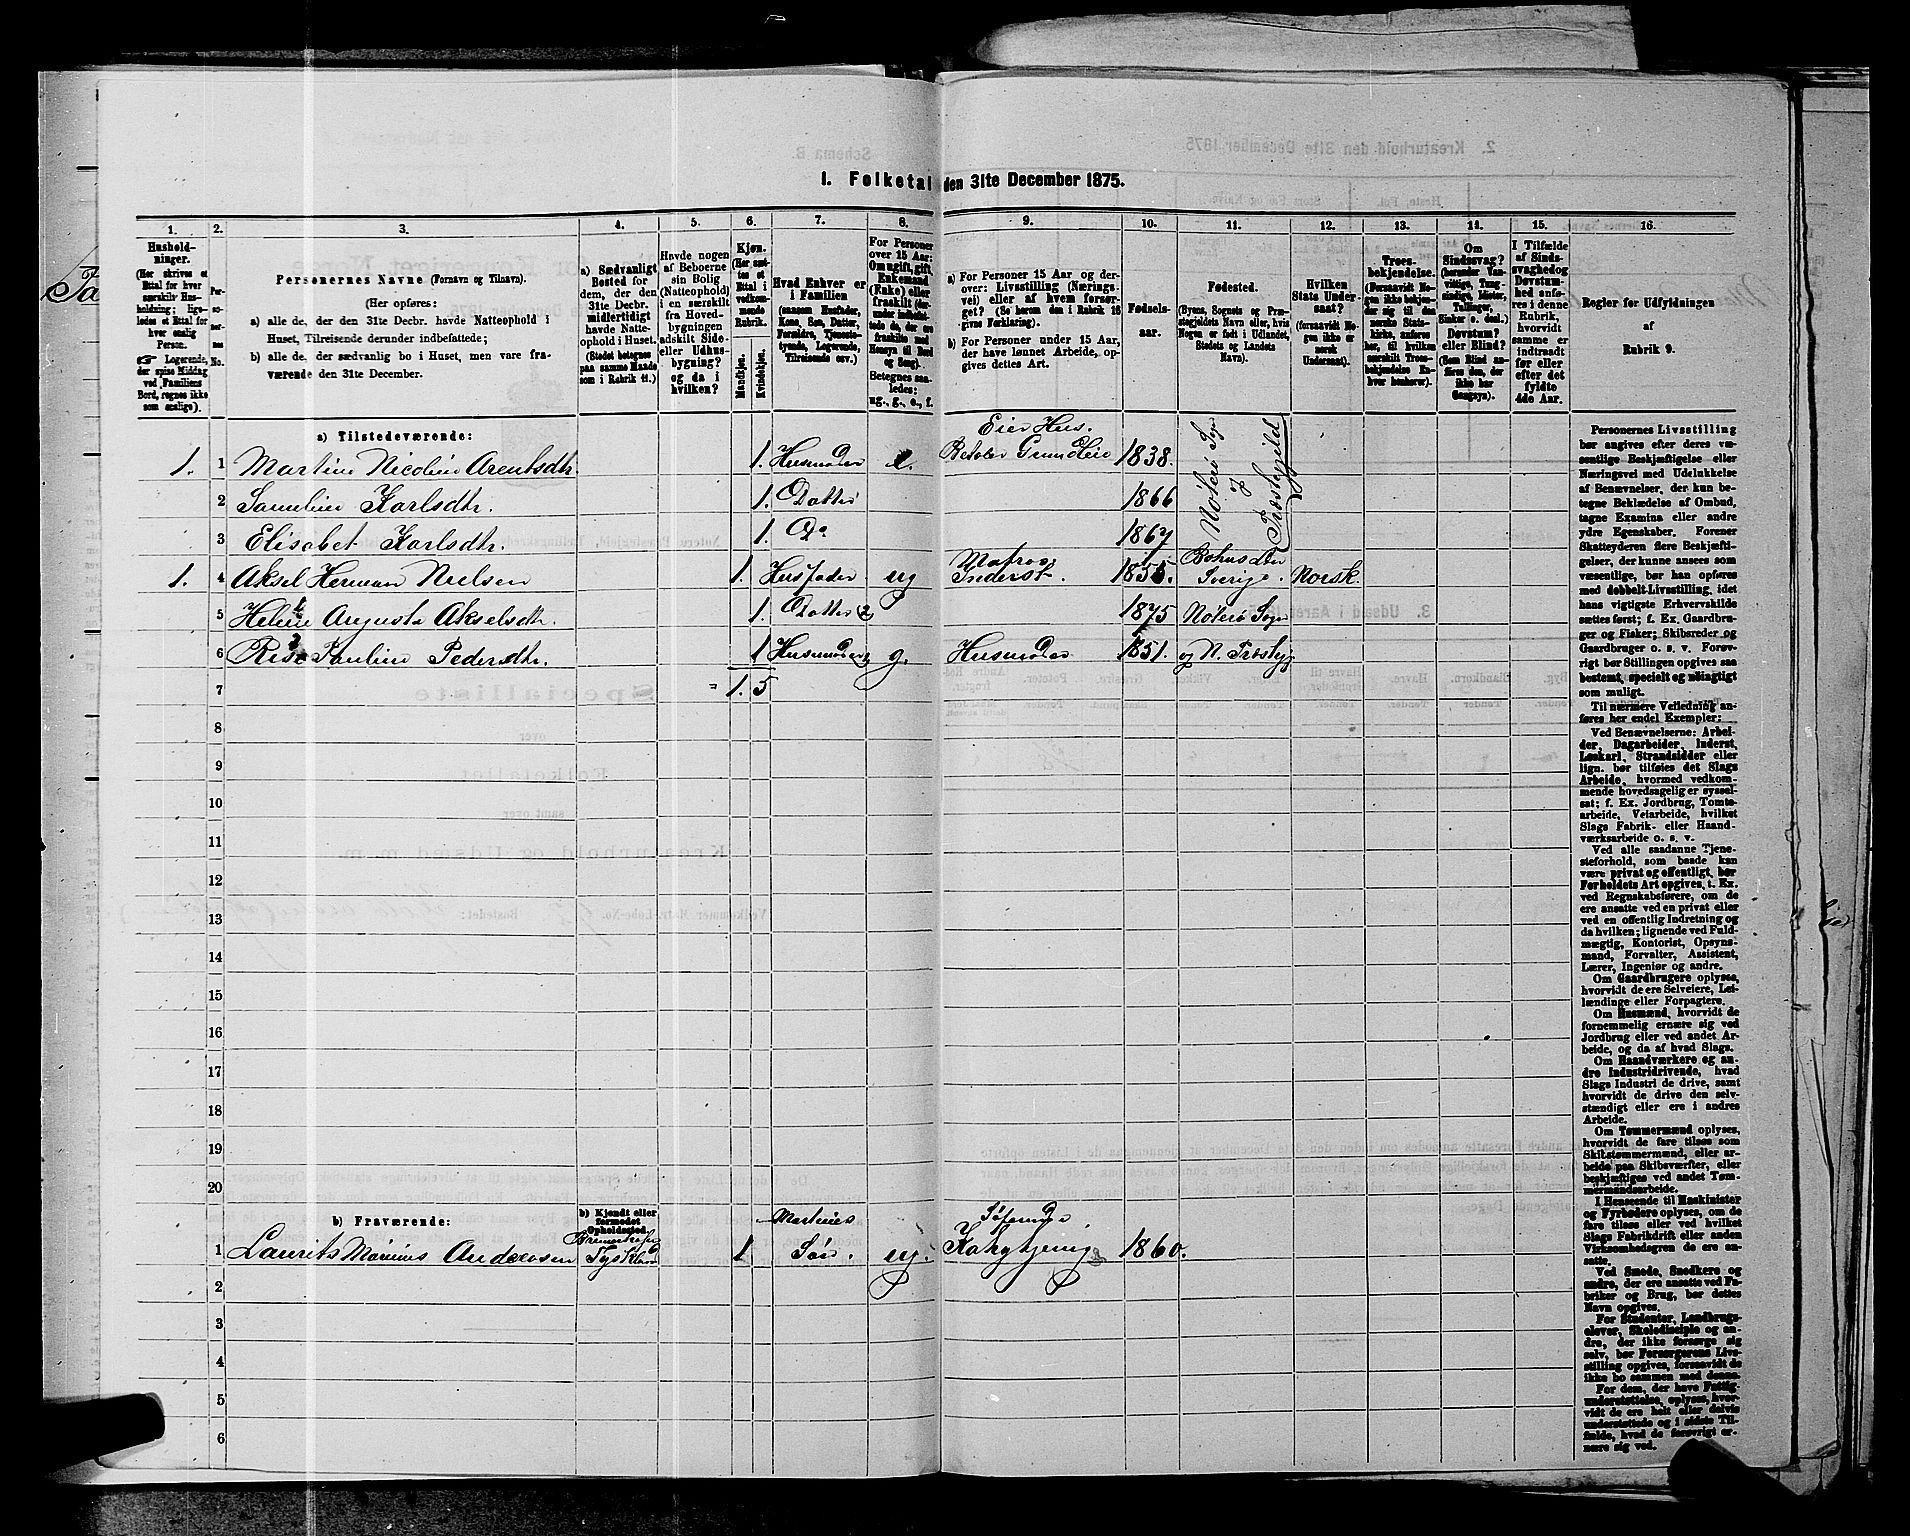 1. Folketal den 31te December 1875.
1. 2. 3. 4. 5. 6. 7. 8. 9. 10. 11. 12. 13. 14. 15. 16.
Husholdninger.
(Her skrives et Ettal for hver særskilt Husholdning; ligeledes et Ettal for hver enslig Person.
☞ Logerende, der spise Middag ved Familiens Bord, regnes ikke som enslige).
Personernes No.
Personernes Navne (Fornavn og Tilnavn).
(Her opføres:
a) alle de, der den 31te Decbr. havde Natteophold i Huset, Tilreisende derunder indbefattede;
b) alle de, der sædvanlig bo i Huset, men vare fraværende den 31te December.
a) Sædvanligt Bosted for dem, der den 31te Decbr. midlertidigt havde Natteophold i Huset. (Stedet betegnes paa samme Maade som i Rubrik 11.)
Havde nogen af Beboerne sin Bolig (Natteophold) i en særskilt fra Hovedbygningen adskilt Side- eller Udhusbygning? og da i hvilken?
Kjøn. (Her sættes et Ettal i vedkommende Rubrik.
Mandkjøn. Kvindekjøn.
Hvad Enhver er i Familien
(saasom Husfader, Kone, Søn, Datter, Forældre, Tjenestetyende, Logerende, Tilreisende osv.)
For Personer over 15 Aar: Om ugift, gift, Enkemand (Enke) eller fraskilt
Betegnes saaledes: ug., g., e., f.
a) For Personer 15 Aar og derover: Livsstilling (Næringsvei) eller af hvem forsørget? (Se herom den i Rubrik 16 givne Forklaring).
b) For Personer under 15 Aar, der have lønnet Arbeide, opgives dettes Art.
Fødselsaar.
Fødested.
(Byens, Sognets og Præstegjeldets Navn eller, hvis Nogen er født i Udlandet, Stedets og Landets Navn).
Hvilken Stats Undersaat?
(forsaavidt Nogen ikke er norsk Undersaat).
Troesbekjendelse.
(Forsaavidt Nogen ikke bekjender sig til den norske Statskirke, anføres her, til hvilken særskilt Troesbekjendelse Enhver henhører).
Om Sindssvag?
Døvstum? eller Blind?
(Som Blind anføres den, der ikke har Gangsyn).
I Tilfælde af Sindssvaghed og Døvstumhed anføres i denne Rubrik, hvorvidt samme er indtraadt før eller efter det fyldte 4de Aar.
Regler for Udfyldningen af Rubrik 9.
a) Tilstedeværende:
1. 1 Martine Nicoline Arentsdtr. 1. Husmoder e. Eier Hus. Betaler Grundleie 1838. Nøterø Sogn
2 Samuline Karlsdtr. 1. Datter 1866
3 Elisabet Karlsdtr. 1. Do 1867
1. 4 Aksel Herman Nielsen 1. Husfader ug Matros Inderst. 1855. Sverige. Norsk.
5 Heline Augusta Akselsdtr. 1. Datter 1875 Nøterø Sogn
6 Pauline Pedersdtr. 1 Husmoder g. Husmoder 1851. og N. Præstegj
7 = 1. 5
8
9
10
11
12
13
14
15
16
17
18
19
20
b) Fraværende: b) Kjendt eller formodet Opholdssted.
1 Laurits Marinus Andersen Tyskland 1 Martines Søn. ug. Søfarende 1860.
2
3
4
5
6
Personernes Livsstilling bør angives efter deres væsentlige Beskjæftigelse eller Næringsvei med Udelukkelse af Benævnelser, der kun betegne Beklædelse af Ombud, tagne Examina eller andre ydre Egenskaber. Forener Skatteyderen flere Beskjæftigelser, der kunne ansees som væsentlige, bør han opføres med dobbelt-Livsstilling, idet hans vigtigste Erhvervskilde sættes først; f. Ex. Gaardbruger og Fisker; Skibsreder og Gaardbruger o. s. v. Forøvrigt bør Stillingen opgives saa bestemt, specielt og nøiagtigt som muligt.
Til nærmere Veiledning anføres her endel Exempler:
Ved Benævnelserne: Arbeider, Dagarbeider, Inderst, Løskarl, Strandsidder eller lign. bør tilføies det Slags Arbeide, hvormed vedkommende hovedsagelig er sysselsat; f. Ex. Jordbrug, Tomtearbeide, Veiarbeide, hvilket Slags Fabrik- eller Haandværksarbeide o. s. v.
Ved alle saadanne Tjenesteforhold, som baade kan være privat og offentligt, bør Forholdets Art opgives, t. Ex. ved Regnskabsførere, om de ere ansatte ved en privat eller ved en offentlig Indretning og da hvilken; lignende ved Fuldmægtig, Kontorist, Opsynsmand, Forvalter, Assistent, Lærer, Ingeniør og andre.
Om Gaardbrugere oplyses, hvorvidt de ere Selveiere, Leilændinge eller Forpagtere.
Om Husmænd, hvorvidt de fornemmelig ernære sig ved Jordbrug eller ved andet Arbeide, og da af hvad Slags.
Om Haandværkere og andre Industridrivende, hvad Slags Industri de drive, samt hvorvidt de drive den selvstændigt eller ere i andres Arbeide.
Om Tømmermænd oplyses, hvorvidt de fare tilsøs som Skibstømmermænd, eller arbeide paa Skibsværfter, eller beskjæftiges ved andet Tømmermandsarbeide.
I Henseende til Maskinister og Fyrbødere oplyses, om de fare tilsøs eller ved hvilket Slags Fabrikdrift eller anden Virksomhed de ere ansatte.
Ved Smede, Snedkere og andre, der ere ansatte ved Fabriker og Brug, bør dettes Navn opgives.
For Studenter, Landbrugselever, Skoledisciple og andre, der ikke forsørge sig selv, bør Forsørgerens Livsstilling opgives, forsaavidt de ikke bo sammen med denne.
For dem, der have Fattigunderstøttelse, oplyses, hvorvidt de ere helt eller delvis understøttede og i sidste Tilfælde, hvad de forøvrigt ernære sig ved.